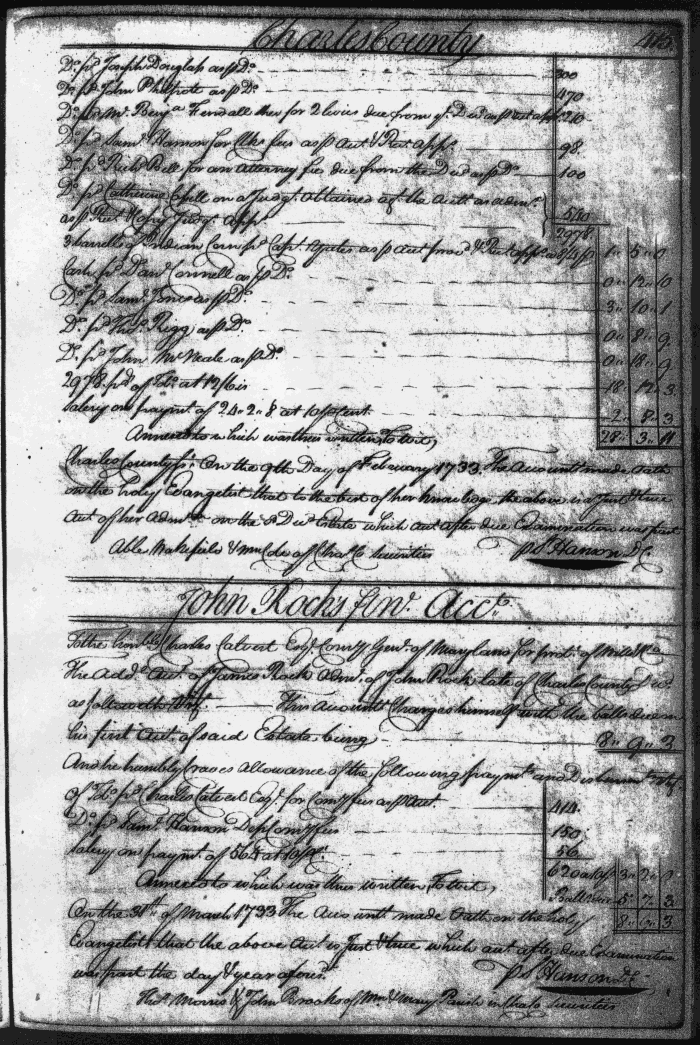 Charles County
Do. pd. Joseph Douglass as p Do. 300
Do. pd. John Philpote as p Do. 470
Do. Mr. Benja. Fendall Sher for 2 levies due from ye. Decd as p 210
Do. pd. Saml. Hanson for Clks fees as p Aut & Rect. app. 98
Do. pd. Richd. Bell for an Attorney fee due from the Decd as p Do. 100
Do. pd. Catherine on a Judgt. obtained agt. the Actt as admx.
as p Rect. & Copy Judgt. App. 550
2978
3 barrells of Indian Corn pd. Capt. as p Aut prov'd & Rect. app. 1 .. 5 .. 0
Cash pd. Danl. Connell as p Do. 0 .. 12 .. 0
Do. pd. Saml. Jones as p Do. 3 .. 10 .. 1
Do. pd. Thos. Rigg as p Do. 0 .. 8 .. 9
Do. pd. John McNeale as p Do. 0 .. 18 .. 9
2978 pds. of Tobo. at 12/6 is 18 .. 12 .. 3
Salery on paymt. of 24 .. 2 .. 8 at 10 p Cent. 2 .. 8 .. 3
28 .. 3 .. 11
Annexed to which was thus written, To wit,
Charles County ss. On the 9th Day of February 1733 The Accountt made Oath
on the holy Evangelist that to the best of her knowledge the above is a Just & true
Aut of her admn. on the sd Decd Estate which aut after due Examination was past
Able Wakefield & of Chas. Co. Securities p Sl. Hanson DC
John Rocks Finl. Acct.
To the honble. Charles Calvert Esqr. Comry Genl. of Maryland for probt. of Wills &c
The Addl. Aut. of James Rock Admr. of John Rock late of Charles County Decd
as followeth Vizt. This Accountt Charges himself with the ballce due on
his first Aut. of said Estate being 8 .. 9 .. 3
And he humbly Craves Allowance of the following paymts. and Disbursmts. Vizt.
Of Tobo. pd. Charles Calvert Esqr. for Comrys fees as p Aut 414
Do. pd. Saml. Hanson Dep Comrys fees 150
Salery on paymt. of 564 at 10 p Ct. 56
620 3 .. 2 .. 0
Annexed to which was thus written, To wit, Ballce 5 .. 7 .. 3
On the 30th of March 1733 The Accountt made Oath on the holy 8 .. 9 .. 3
Evangelist that the above Aut is Just & true which aut after due Examination
was past the day & year aforesd. p Sl. Hanson DC
Thos. Morris & John Brooks of Wm. & Mary Parish in Chas. Co. Securities